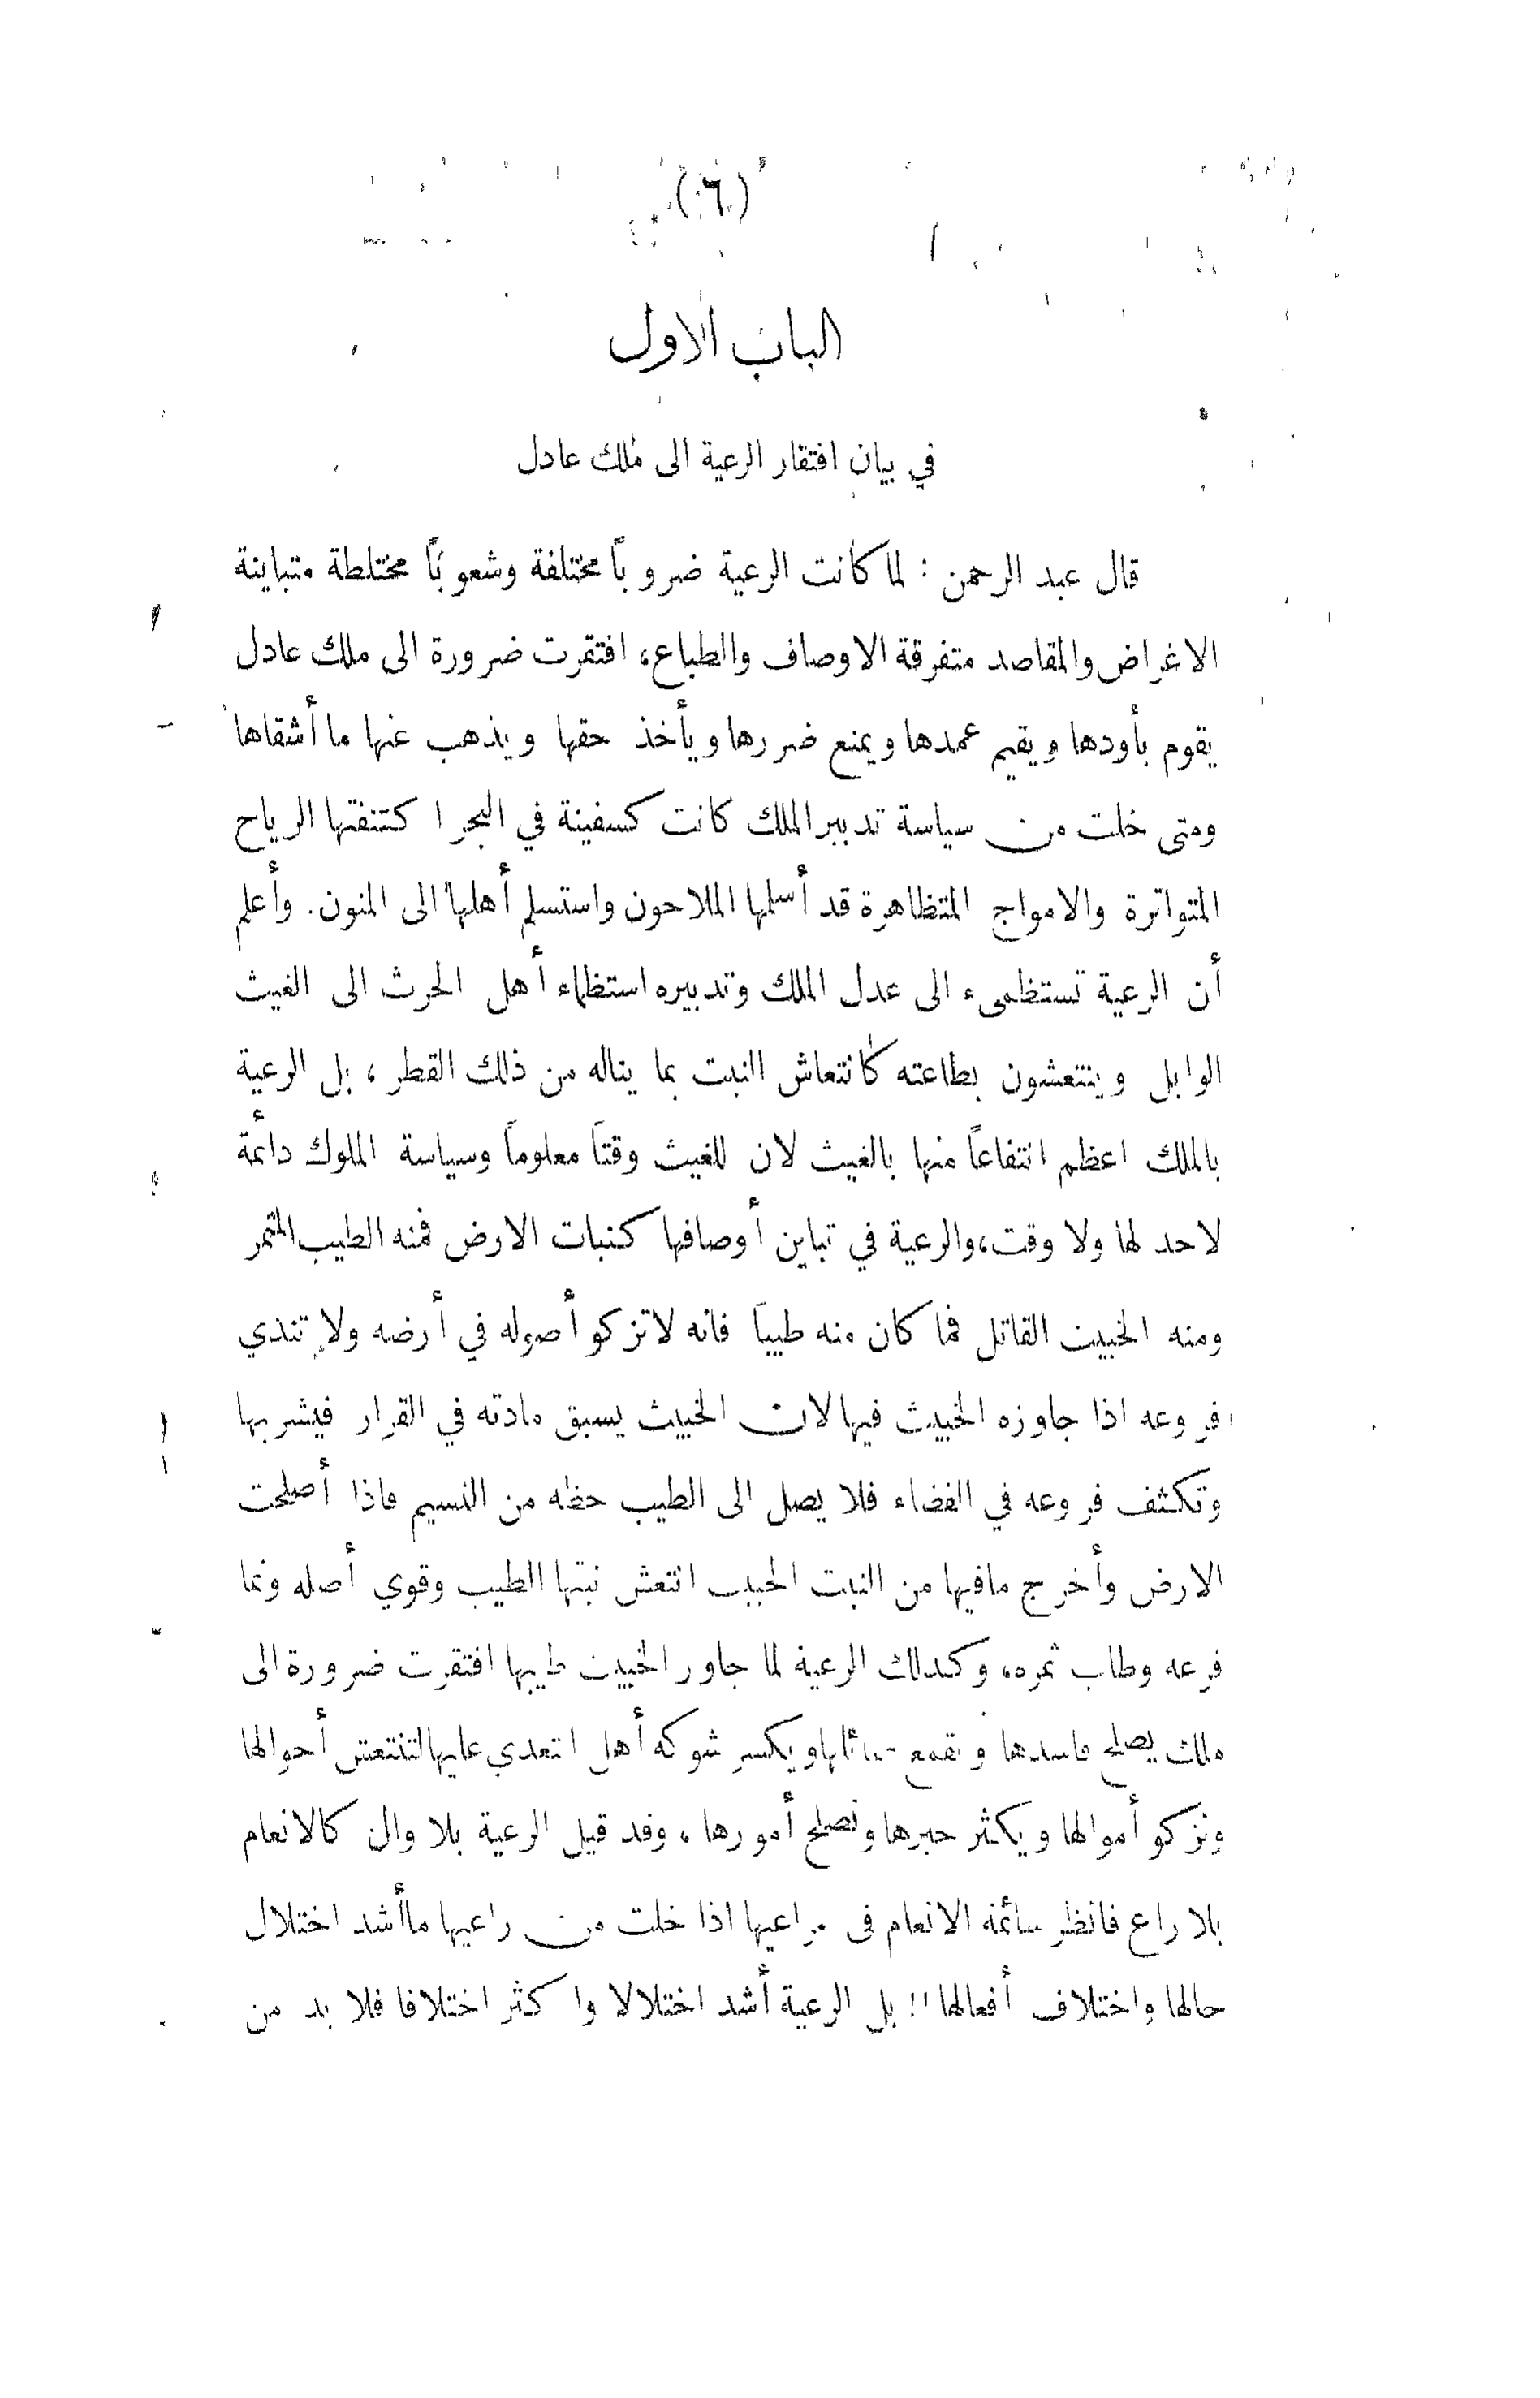 (٦)
الباب الاول
في بيان افتقار الرعية الى ملك عادل
قال عبد الرحمن : لما كانت الرعية ضروباً مختلفة وشعوباً مختلطة متباينة
الاغراض والمقاصد متفرقة الاوصاف والطباع، افتقرت ضرورة الى ملك عادل
يقوم بأودها ويقيم عمدها ويمنع ضررها ويأخذ حقها ويذهب عنها ما أشقاها
ومتى خلت من سياسة تدبير الملك كانت كسفينة في البحر ا كتنفتها الرياح
المتواترة والامواج المتظاهرة قد أسلمها الملاحون واستسلم أهلها الى المنون. وأعلم
أن الرعية تستظمىء الى عدل الملك وتدبيره استظماء أهل الحرث الى الغيث
الوابل وينتعشون بطاعته كانتعاش النبت بما يناله من ذلك القطر ، بل الرعية
بالملك اعظم انتفاعاً منها بالغيث لان للغيث وقتاً معلوماً وسياسة الملوك دائمة
لاحد لها ولا وقت، والرعية في تباين أوصافها كنبات الارض فمنه الطيب المثمر
ومنه الخبيث القاتل فما كان منه طيباً فانه لاتزكو أصوله في أرضه ولا تندي
فروعه اذا جاوزه الخبيث فيها لان الخبيث يسبق مادته في القرار فيشربها
وتكثف فروعه في الفضاء فلا يصل الى الطيب حظه من النسيم فاذا أصلحت
الارض وأخرج مافيها من النبت الخبيث انتعش نبتها الطيب وقوي أصله ونما
فرعه وطاب ثمره، وكذلك الرعية لما جاور الخبيث طيبها افتقرت ضرورة الى
ملك يصلح فاسدها ويقمع ويكسر شوكة أهل التعدي عليها لتنتعش أحوالها
وتزكو أموالها ويكثر خيرها وتصلح أمورها ، وقد قيل الرعية بلا وال كالانعام
بلا راع فانظر سائمة الانعام في مراعيها اذا خلت من راعيها ماأشد اختلال
حالها واختلاف أفعالها !! بل الرعية أشد اختلالا وا كثر اختلافا فلا بد من